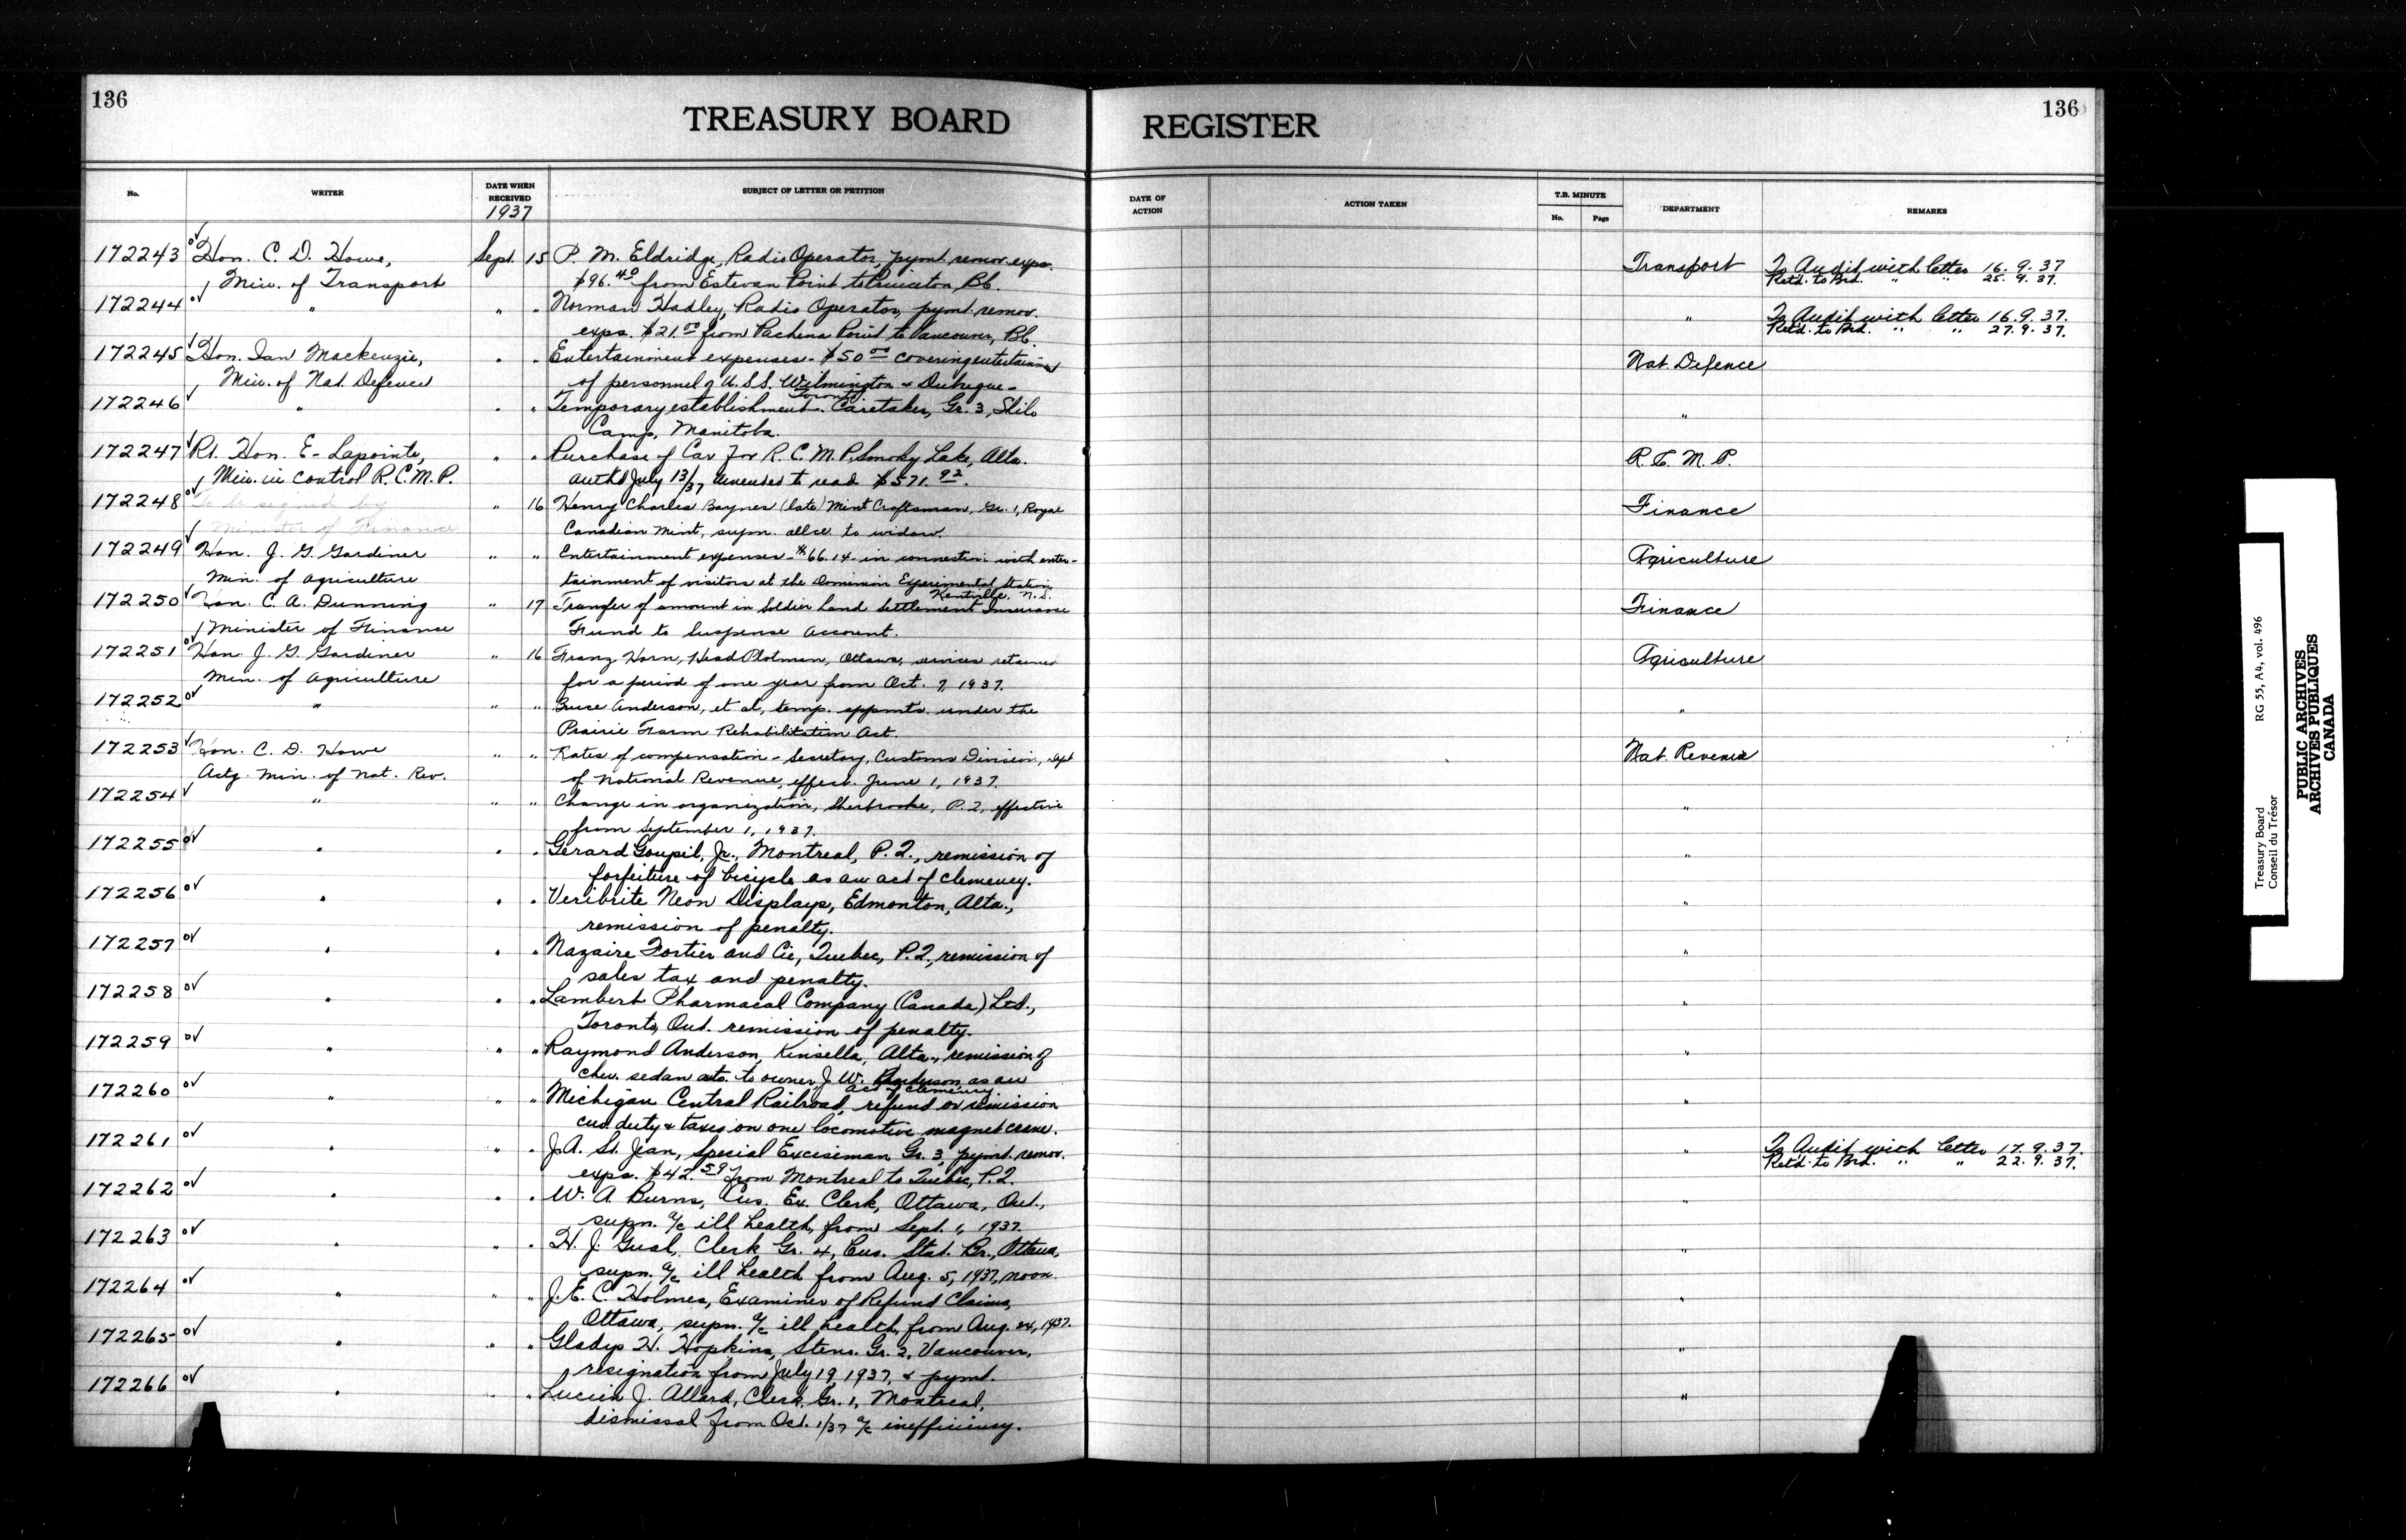 136
TREASURY BOARD
REGISTER
136
No.
WRITER
DATE WHEN RECEIVED
1937
SUBJECT OF LETTER OR PETITION
DATE OF ACTION
ACTION TAKEN
T.B. MINUTE
No.
Page
DEPARTMENT
REMARKS
172243 Hon. C. D. Howe, Sept. 15 P. M. Eldridge, Radio Operator, pymt. remov. exps. Transport To Audit with letter 16.9.37
Min. of Transport $96.40 from Estevan Point to Princeton, B.C. Retd. to Brd. " " 25.9.37.
172244 " " " Norman Hadley, Radio Operator, pymt. remov. " To Audit with letter 16.9.37.
exps. $21.00 from Pachena Point to Vancouver, B.C. Retd. to Brd. " " 27.9.37.
172245 Hon. Ian Mackenzie, " " Entertainment expenses - $50.00 covering entertainment Nat. Defence
Min. of Nat. Defence of personnel of U.S.S. Wilmington & Dubuque -
Toronto
172246 " " " Temporary establishment. Caretaker, Gr. 3, Shilo "
Camp, Manitoba.
172247 Rt. Hon. E. Lapointe, " " Purchase of Car for R.C.M.P. Smoky Lake, Alta. R.C.M.P.
Min. in control R.C.M.P. authd July 13/37 amended to read $571.92.
172248 To be signed by " 16 Henry Charles Baynes (late) Mint Craftsman, Gr. 1, Royal Finance
Minister of Finance Canadian Mint, supn. allce. to widow.
172249 Hon. J. G. Gardiner " " Entertainment expenses - $66.14 - in connection with enter- Agriculture
Min. of Agriculture tainment of visitors at the Dominion Experimental Station,
Kentville, N.S.
172250 Hon. C. A. Dunning " 17 Transfer of amount in Soldier Land Settlement Insurance Finance
Minister of Finance Fund to Suspense Account.
172251 Hon. J. G. Gardiner " 16 Franz Horn, Head Plotman, Ottawa, services retained Agriculture
Min. of Agriculture for a period of one year from Oct. 7, 1937.
172252 " " " Anderson, et al, temp. appmts. under the "
Prairie Farm Rehabilitation Act.
172253 Hon. C. D. Howe " " Rates of compensation - Secretary, Customs Division, Dept Nat. Revenue
Actg. Min. of Nat. Rev. of National Revenue, effect. June 1, 1937.
172254 " " " Change in organization, Sherbrooke, P.Q., effective "
from September 1, 1937.
172255 " " " Gerard Goupil, Jr., Montreal, P.Q., remission of "
forfeiture of bicycle as an act of clemency.
172256 " " " Veribrite Neon Displays, Edmonton, Alta., "
remission of penalty.
172257 " " " Nazaire Fortier and Cie, Quebec, P.Q., remission of "
sales tax and penalty.
172258 " " " Lambert Pharmacal Company (Canada) Ltd., "
Toronto, Ont. remission of penalty.
172259 " " " Raymond Anderson, Kinsella, Alta., remission of "
Chev. sedan auto. to owner J. W. Anderson, as an
act of clemency
172260 " " " Michigan Central Railroad, refund or remission "
cus. duty & taxes on one locomotive magnet crane.
172261 " " " J.A. St. Jean, Special Exciseman Gr. 3, pymt. remov. " To Audit with letter 17.9.37.
exps. $42.59 from Montreal to Quebec, P.Q. Retd. to Brd. " " 22.9.37.
172262 " " " W. A. Burns, Cus. Ex. Clerk, Ottawa, Ont., "
supn. a/c ill health, from Sept. 1, 1937.
172263 " " " H. J. Clerk, Gr. 4, Cus. Stat. Br., Ottawa, "
supn. a/c ill health from Aug. 5, 1937, noon.
172264 " " " J. E. C. Holmes, Examiner of Refund Claims, "
Ottawa, supn. a/c ill health, from Aug. 24, 1937.
172265 " " " Gladys H. Hopkins, Steno. Gr. 2, Vancouver, "
resignation from July 19, 1937, & pymt.
172266 " " " Lucien J. Allard, Clerk, Gr. 1, Montreal, "
dismissal from Oct. 1/37 a/c inefficiency.
Treasury Board
Conseil du Trésor
RG 55, A4, vol. 496
PUBLIC ARCHIVES
ARCHIVES PUBLIQUES
CANADA